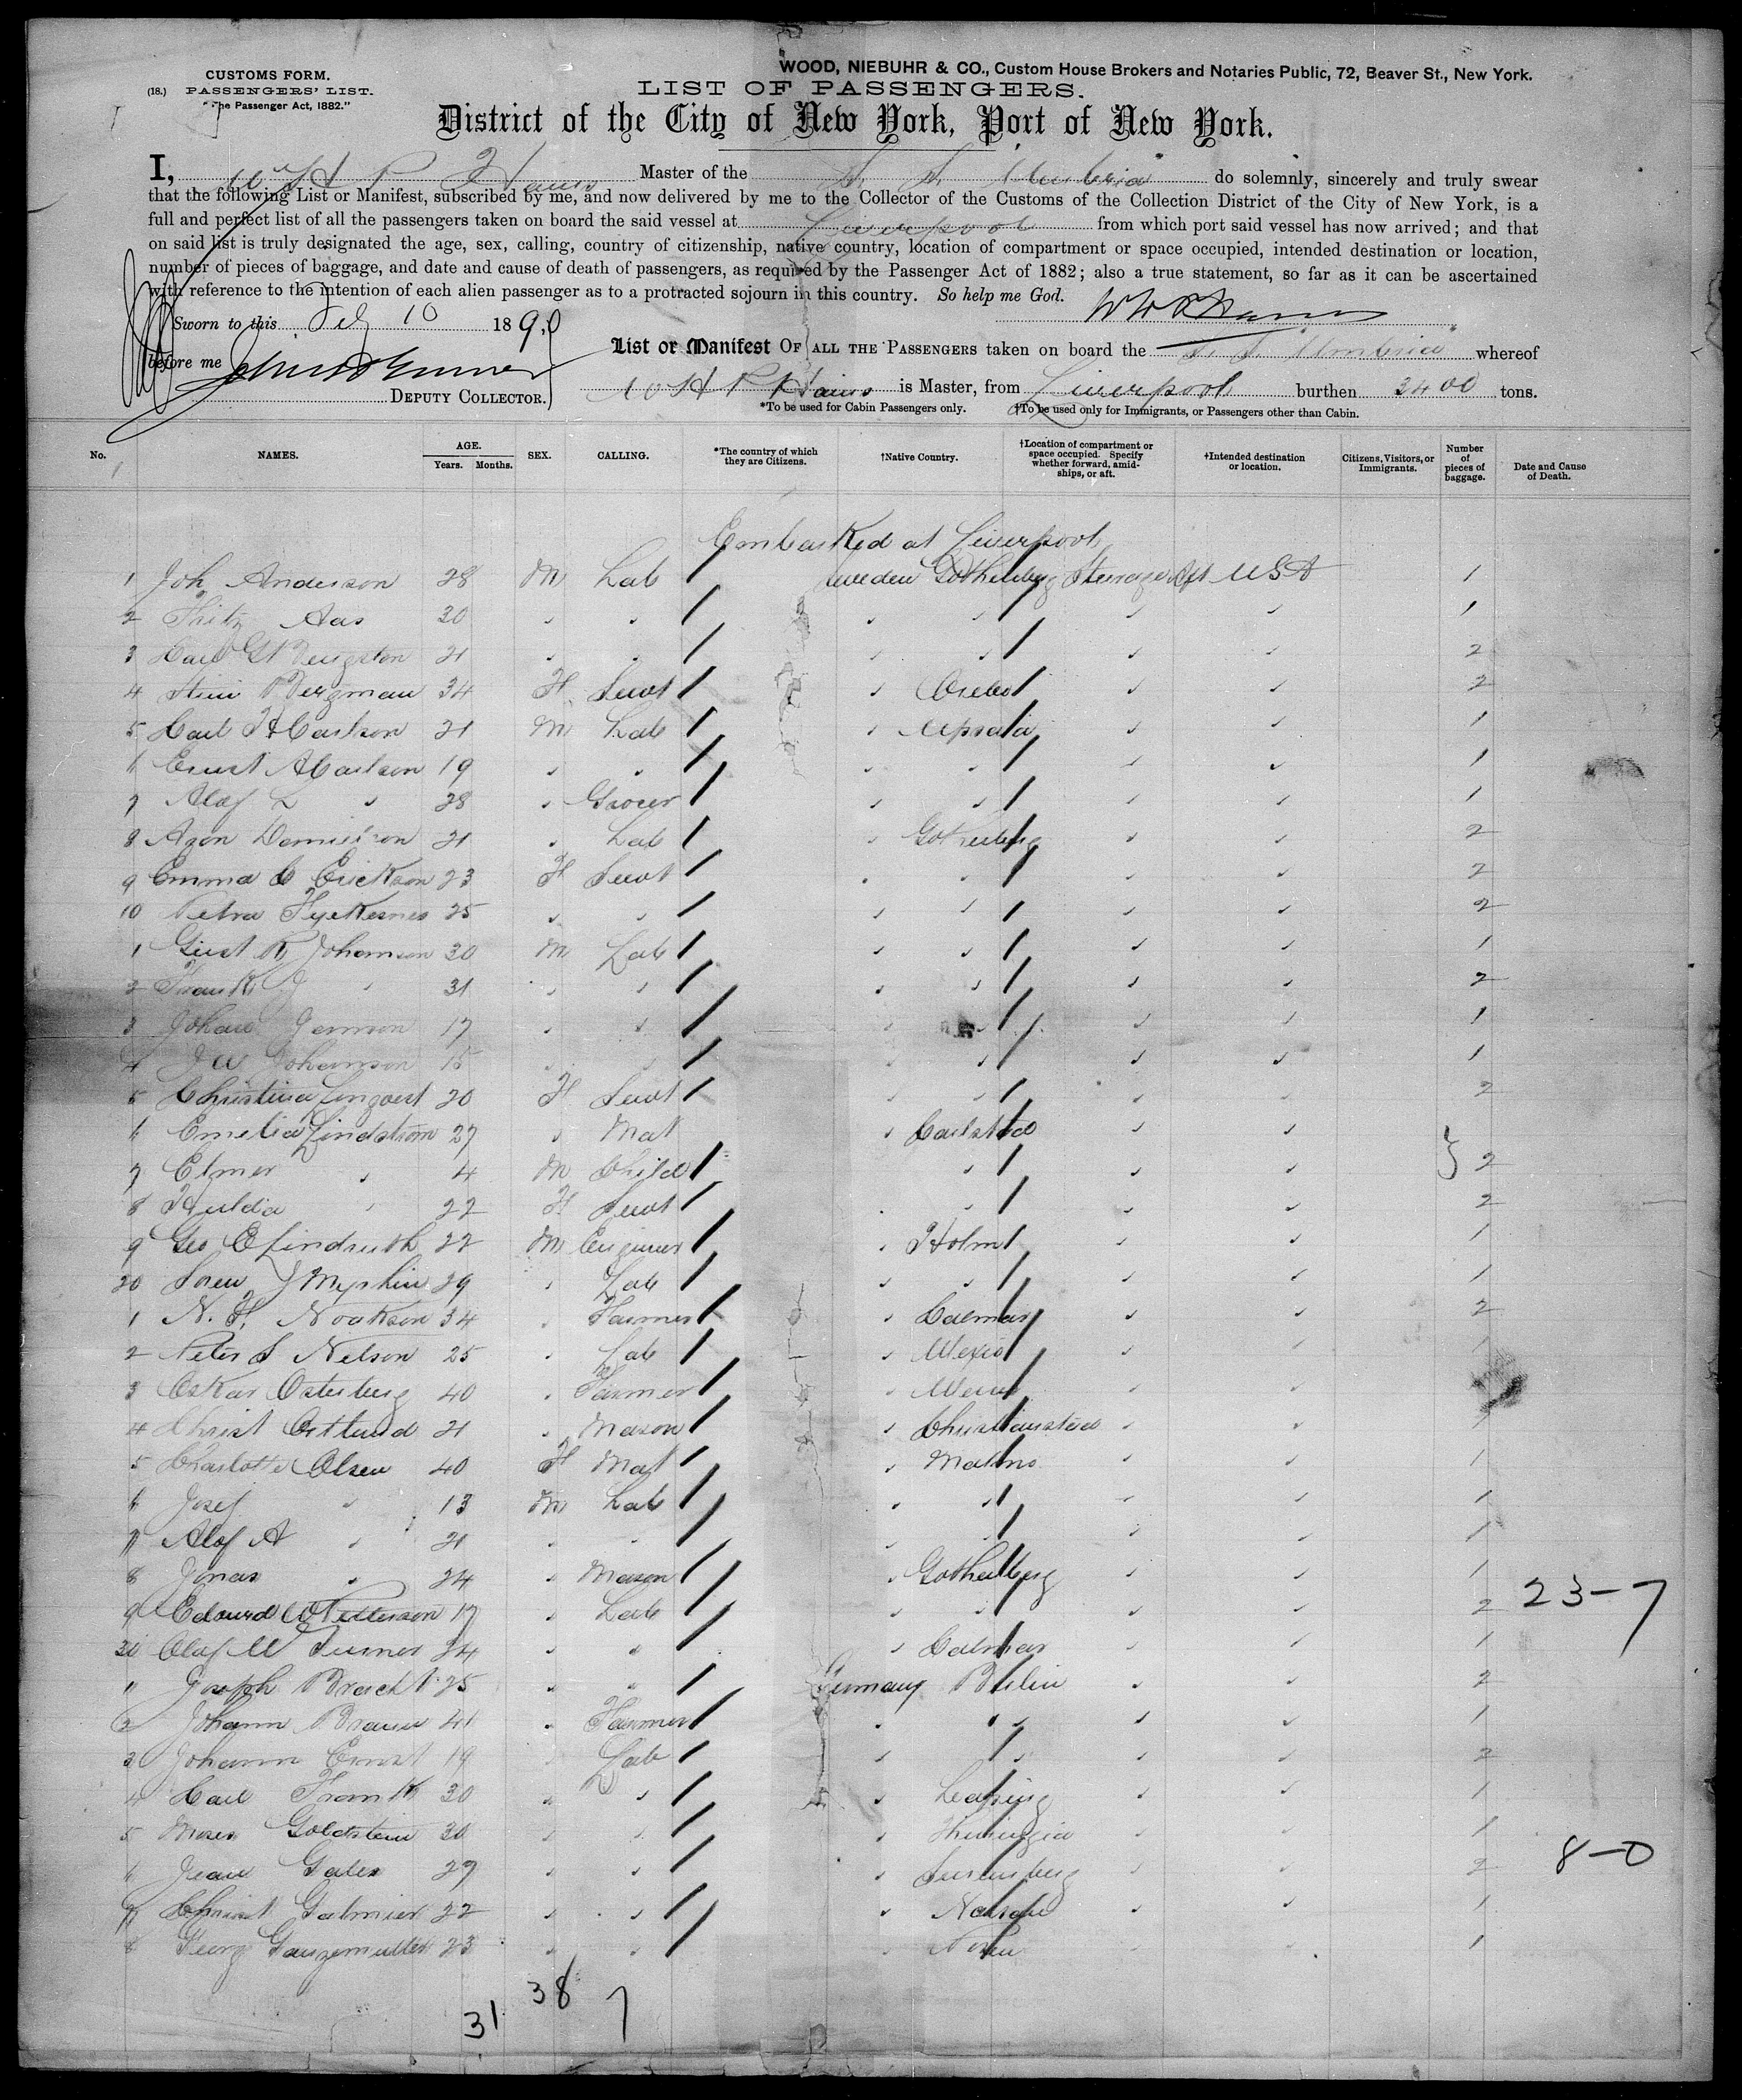 WOOD, NIEBUHR & CO., Custom House Brokers and Notaries Public, 72, Beaver St., New York.
CUSTOMS FORM.
(18.) PASSENGERS' LIST.
"The Passenger Act, 1882."
LIST OF PASSENGERS.
District of the City of New York, Port of New York.
I, W H P Hains Master of the S. S. Umbria do solemnly, sincerely and truly swear
that the following List or Manifest, subscribed by me, and now delivered by me to the Collector of the Customs of the Collection District of the City of New York, is a
full and perfect list of all the passengers taken on board the said vessel at Liverpool from which port said vessel has now arrived; and that
on said list is truly designated the age, sex, calling, country of citizenship, native country, location of compartment or space occupied, intended destination or location,
number of pieces of baggage, and date and cause of death of passengers, as required by the Passenger Act of 1882; also a true statement, so far as it can be ascertained
with reference to the intention of each alien passenger as to a protracted sojourn in this country. So help me God.
Sworn to this Feb 10 1890 W H P Hains
before me
List or Manifest OF ALL THE PASSENGERS taken on board the S. S. Umbria whereof
W H P Hains is Master, from Liverpool burthen 3400 tons.
DEPUTY COLLECTOR.
*To be used for Cabin Passengers only. †To be used only for Immigrants, or Passengers other than Cabin.
No. NAMES. AGE. Years. Months. SEX. CALLING. *The country of which they are Citizens. †Native Country. †Location of compartment or space occupied. Specify whether forward, amidships, or aft. †Intended destination or location. Citizens, Visitors, or Immigrants. Number of pieces of baggage. Date and Cause of Death.
Embarked at Liverpool
1 Joh Anderson 28 M Lab Sweden Gothenberg Steerage Aft USA 1
2 Fritz Aas 30 1
3 Carl G Bengston 21 2
4 Bergman 34 F Servt Orebo 2
5 Carl H Carlson 21 M Lab Upsala 1
6 Ernst A Carlson 19 1
7 Alof L " 28 Grocer 1
8 Danielson 21 Lab Gothenberg 2
9 Emma C Erickson 23 F Servt 2
10 Petra 25 2
1 Gust Johanson 30 M Lab 1
2 Frank J " 31 2
3 Johan 17 1
4 Johanson 15 1
5 Christina Linqvest 20 F Servt 2
6 Emelia Lindstrom 27 Mat Carlstad
7 Elmer " 4 M Child 2
8 Hulda " 22 F Servt 2
9 Geo E Lindruth 22 M Engineer Holm 1
20 Soren J 29 Lab 1
1 N. H. Noakson 34 Farmer Calmar 2
2 Peter S Nelson 25 Lab Wexio 1
3 Oskar Osterberg 40 Farmer
4 Christ Ostlund 21 Mason Christianstad
5 Charlotte Olsen 40 F Mat Malmo 1
6 Josef " 13 M Lab 1
7 Alof A " 21 1
8 Jonas " 24 Mason Gothenberg 1
9 Edward W Petterson 17 Lab 2
30 Olof M Turner 24 Calmar 1
23-7
1 Joseph Bracht 25 Germany Berlin 2
2 Johann Braun 41 Farmer 1
3 Johann Ernst 19 Lab 2
4 Carl Frank 30 1
5 Moses Goldstein 30 Thuringia 1
6 Jean 27 2
8-0
7 Christ 22 Nassau 1
8 Georg Ganzemuller 23 1
31 38 7